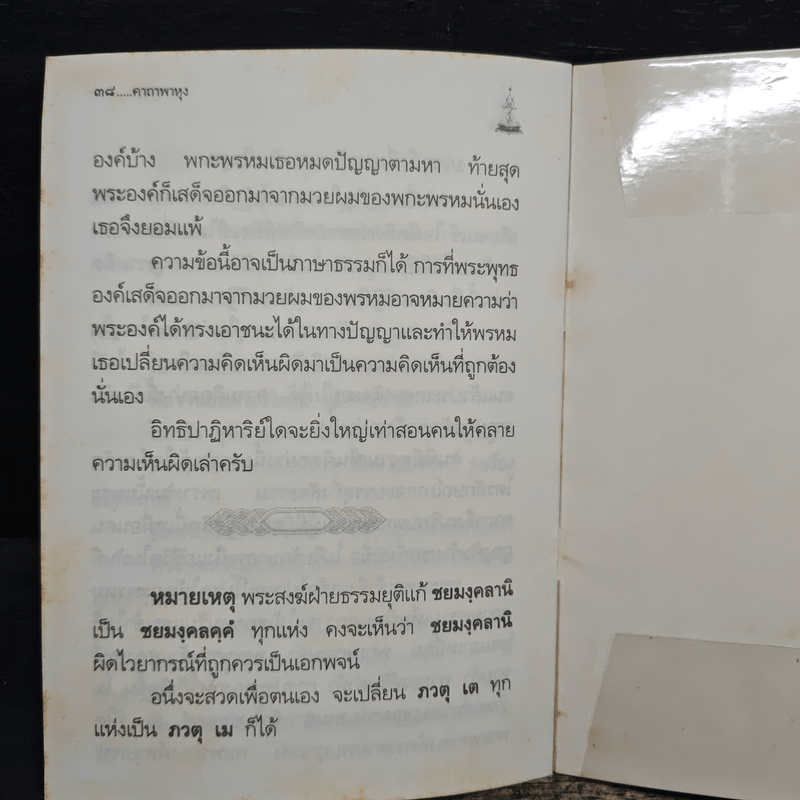 ๓๘.....คาถาพาหุง
องค์บ้าง พกะพรหมเธอหมดปัญญาตามหา ท้ายสุด
พระองค์ก็เสด็จออกมาจากมวยผมของพกะพรหมนั่นเอง
เธอจึงยอมแพ้
ความข้อนี้อาจเป็นภาษาธรรมก็ได้ การที่พระพุทธ
องค์เสด็จออกมาจากมวยผมของพรหมอาจหมายความว่า
พระองค์ได้ทรงเอาชนะได้ในทางปัญญาและทำให้พรหม
เธอเปลี่ยนความคิดเห็นผิดมาเป็นความคิดเห็นที่ถูกต้อง
นั่นเอง
อิทธิปาฏิหาริย์ใดจะยิ่งใหญ่เท่าสอนคนให้คลาย
ความเห็นผิดเล่าครับ
หมายเหตุ พระสงฆ์ฝ่ายธรรมยุติแก้ ชยมงฺคลานิ
เป็น ชยมงฺคลคฺคํ ทุกแห่ง คงจะเห็นว่า ชยมงฺคลานิ
ผิดไวยากรณ์ที่ถูกควรเป็นเอกพจน์
อนึ่งจะสวดเพื่อตนเอง จะเปลี่ยน ภวตุ เต ทุก
แห่งเป็น ภวตุ เม ก็ได้